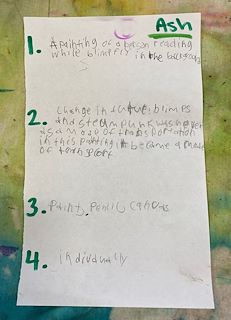 Ash
1. A painting of a person reading
while blimp fly in the background
2. Change in future: blimps
and steampunk was never
as a mode of transportation
in this painting it became a mode
of transport
3. Paint, Pencil, canvas
4. individually